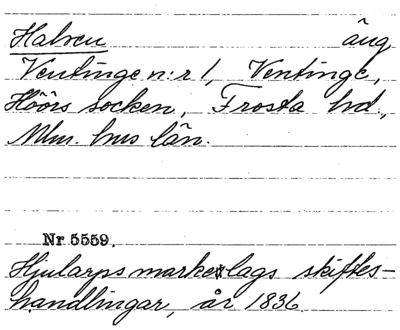 Halven äng
Ventinge n:r 1, Ventinge,
Höörs socken, Frosta hd.,
Mlm. hus län.
Nr 5559.
Hjularps markelags skiftes-
handlingar, år 1836.